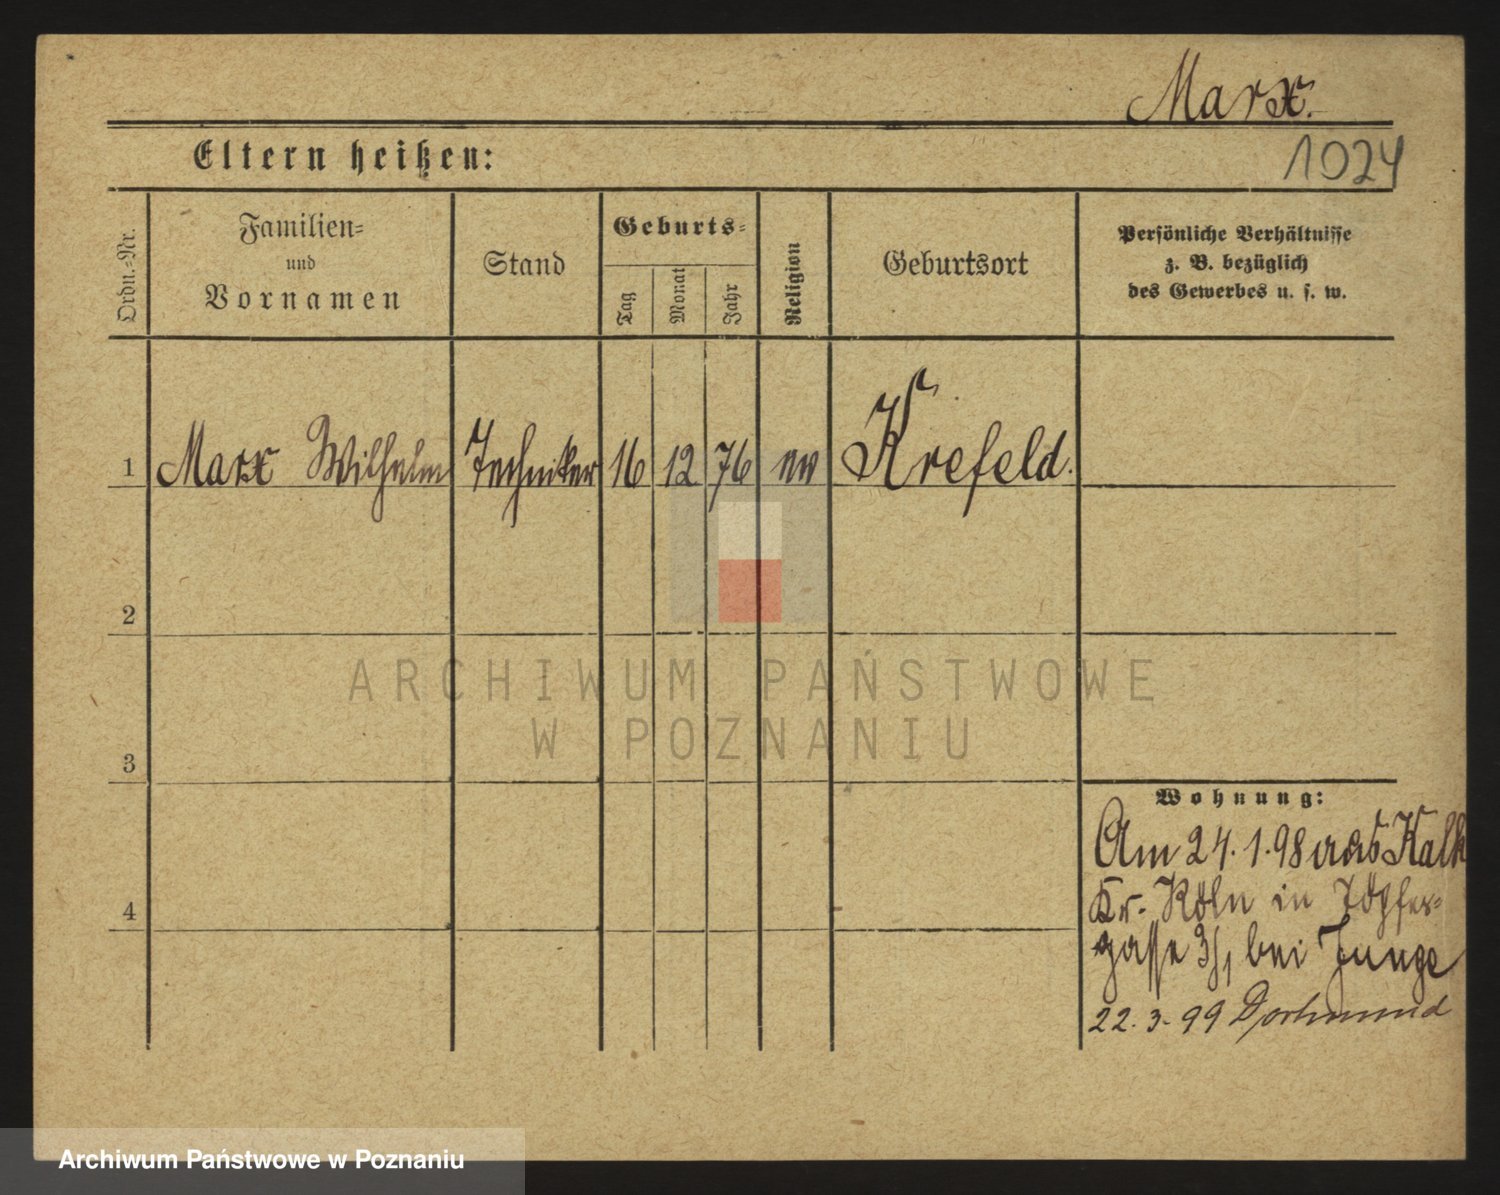 Marx.
1024
Eltern heißen:
Ordn.-Nr.
Familien-
und
Vornamen
Stand
Geburts-
Tag
Monat
Jahr
Religion
Geburtsort
Persönliche Verhältnisse
z. B. bezüglich
des Gewerbes u. s. w.
1 Marx Wilhelm Techniker 16 12 76 ev Krefeld.
2
3
4
Wohnung:
Am 24.1.98 aus Kalk
Kr. Köln in Töpfer-
gasse 3/1 bei Junge
22.3.99 Dortmund
ARCHIWUM PAŃSTWOWE
W POZNANIU
Archiwum Państwowe w Poznaniu